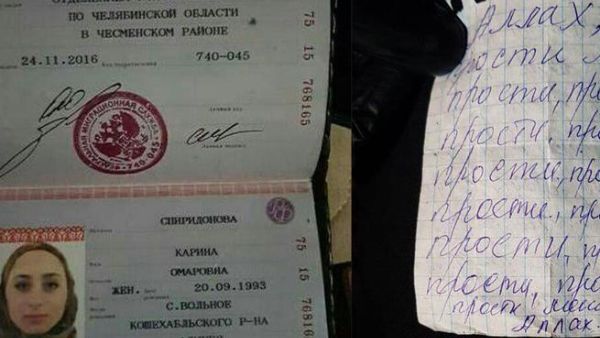 ПО ЧЕЛЯБИНСКОЙ ОБЛАСТИ
В ЧЕСМЕНСКОМ РАЙОНЕ
24.11.2016
740-045
75 15 768165
СПИРИДОНОВА
КАРИНА
ОМАРОВНА
ЖЕН. 20.09.1993
С.ВОЛЬНОЕ
КОШЕХАБЛЬСКОГО Р-НА
75 15 76816
Аллах,
прости
прости,
прости,
прости,
прости,
прости,
прости,
прости
Аллах